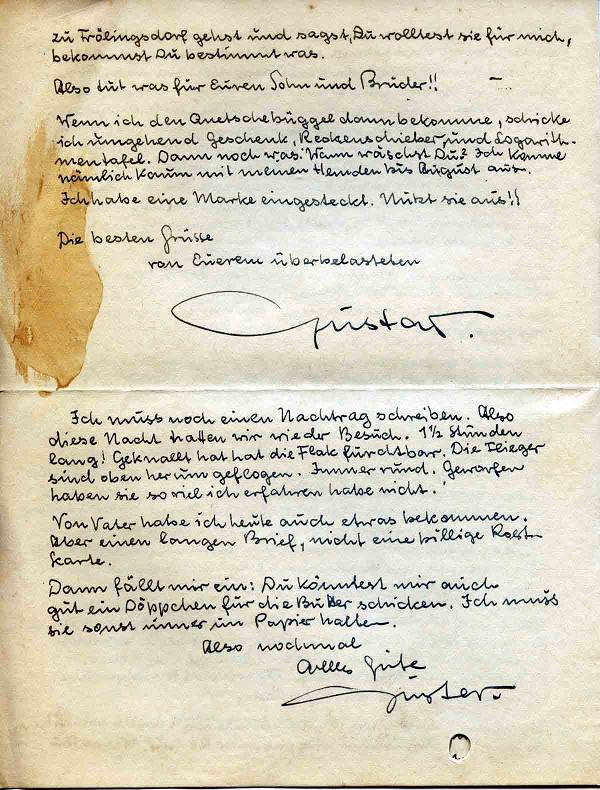 zu Frölingsdorf gehst und sagst, Du wolltest sie für mich,
bekommst Du bestimmt was.
Also tut was für Euren Sohn und Bruder!!
Wenn ich den Quetschebüggel dann bekomme, schicke
ich umgehend Geschenk, Rechenschieber, und Logarith-
mentafel. Dann noch was: Wann wäschst Du? Ich komme
nämlich kaum mit meinen Hemden bis August aus.
Ich habe eine Marke eingesteckt. Nutzt sie aus!!
Die besten Grüsse
von Euerem überbelasteten
Gustav.
Ich muss noch einen Nachtrag schreiben. Also
diese Nacht hatten wir wieder Besuch. 1½ Stunden
lang! Geknallt hat hat die Flak furchtbar. Die Flieger
sind oben herum geflogen. Immer rund. Geworfen
haben sie soviel ich erfahren habe nicht.
Von Vater habe ich heute auch etwas bekommen.
Aber einen langen Brief, nicht eine billige Post-
karte.
Dann fällt mir ein: Du könntest mir auch
gut ein Döppchen für die Butter schicken. Ich muss
sie sonst immer im Papier halten.
Also nochmal
Alles Gute
Gustav.